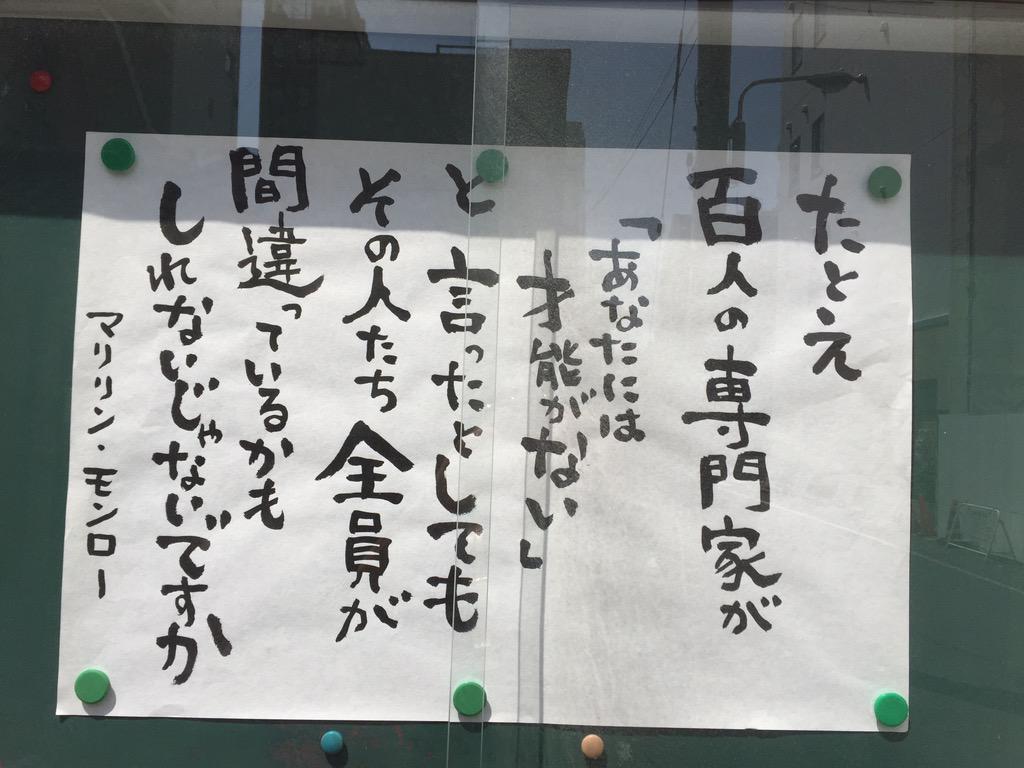 たとえ
百人の専門家が
「あなたには
才能がない」
と言ったとしても
その人たち全員が
間違っているかも
しれないじゃないですか
マリリン・モンロー